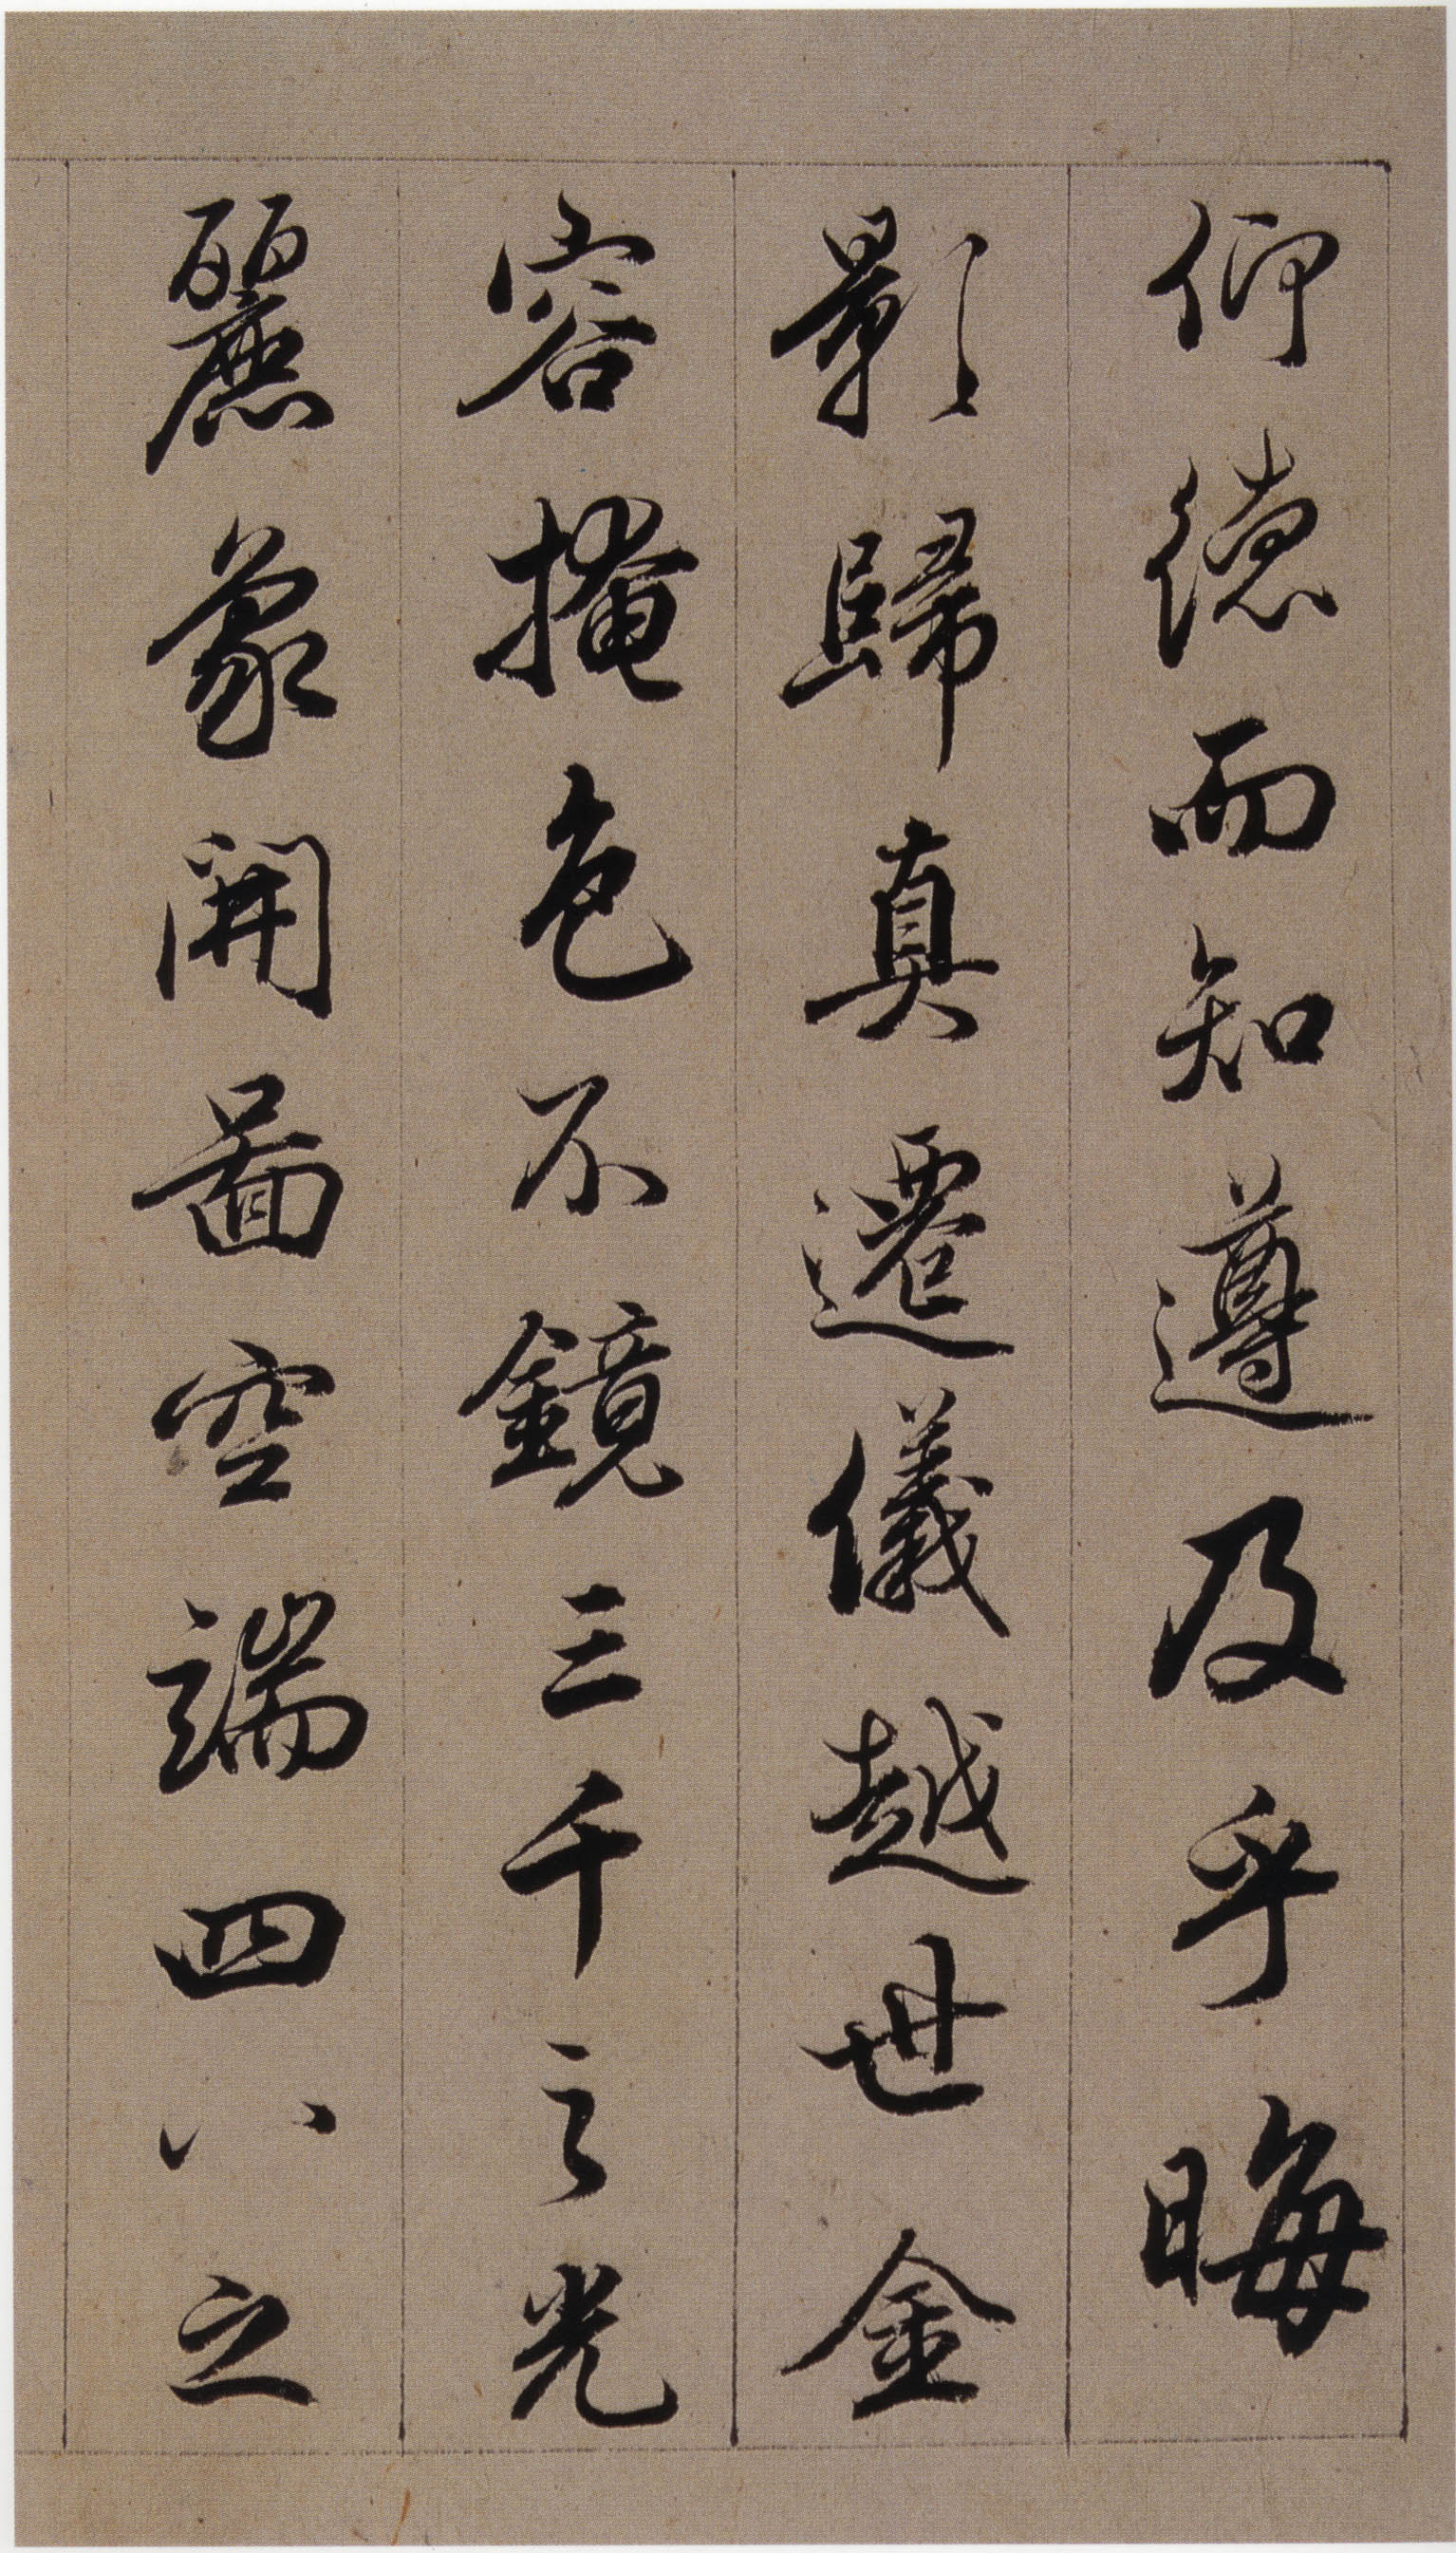 仰德而知遵及乎晦
影歸真遷儀越世金
容掩色不鏡三千之光
麗象開圖空端四八之